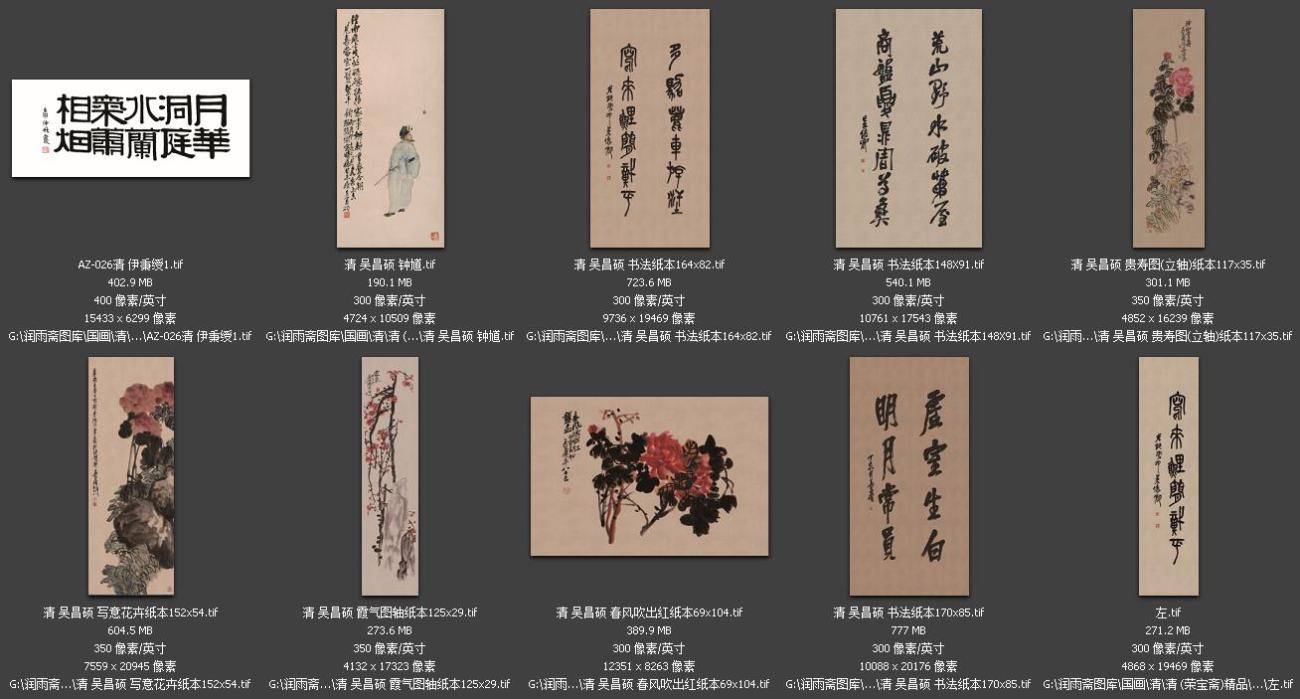 月洞水衆相
華庭蘭肅畑
多駕鸞車
寫來鯉簡
荒山野水破茅屋
商盤夏鼎周尊彝
AZ-026清 伊秉绶1.tif
402.9 MB
400 像素/英寸
15433 x 6299 像素
G:\润雨斋图库\国画\清\...\AZ-026清 伊秉绶1.tif
清 吴昌硕 钟馗.tif
190.1 MB
300 像素/英寸
4724 x 10509 像素
G:\润雨斋图库\国画\清\清 (...\清 吴昌硕 钟馗.tif
清 吴昌硕 书法纸本164x82.tif
723.6 MB
300 像素/英寸
9736 x 19469 像素
G:\润雨斋图库\...\清 吴昌硕 书法纸本164x82.tif
清 吴昌硕 书法纸本148X91.tif
540.1 MB
300 像素/英寸
10761 x 17543 像素
G:\润雨斋图库\...\清 吴昌硕 书法纸本148X91.tif
清 吴昌硕 贵寿图(立轴)纸本117x35.tif
301.1 MB
350 像素/英寸
4852 x 16239 像素
G:\润雨...\清 吴昌硕 贵寿图(立轴)纸本117x35.tif
虚室生白
明月常員
清 吴昌硕 写意花卉纸本152x54.tif
604.5 MB
350 像素/英寸
7559 x 20945 像素
G:\润雨斋...\清 吴昌硕 写意花卉纸本152x54.tif
清 吴昌硕 霞气图轴纸本125x29.tif
273.6 MB
350 像素/英寸
4132 x 17323 像素
G:\润雨斋...\清 吴昌硕 霞气图轴纸本125x29.tif
清 吴昌硕 春风吹出红纸本69x104.tif
389.9 MB
300 像素/英寸
12351 x 8263 像素
G:\润雨...\清 吴昌硕 春风吹出红纸本69x104.tif
清 吴昌硕 书法纸本170x85.tif
777 MB
300 像素/英寸
10088 x 20176 像素
G:\润雨斋图库\...\清 吴昌硕 书法纸本170x85.tif
左.tif
271.2 MB
300 像素/英寸
4868 x 19469 像素
G:\润雨斋图库\国画\清\清 (荣宝斋)精品\...\左.tif